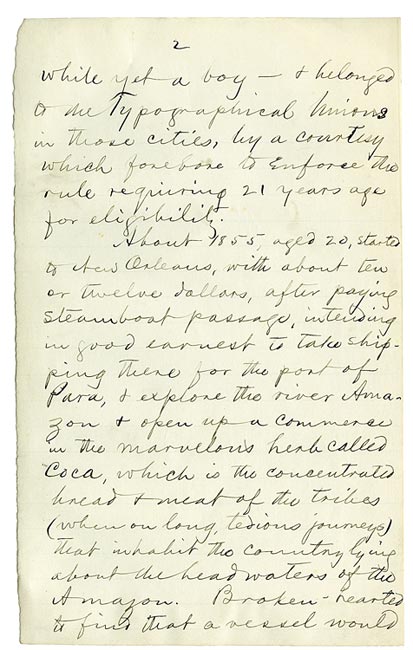 2
while yet a boy — & belonged
to the Typographical Unions
in those cities, by a courtesy
which forebore to enforce the
rule requiring 21 years age
for eligibility.
About 1855, aged 20, started
to New Orleans, with about ten
or twelve dollars, after paying
steamboat passage, intending
in good earnest to take ship-
ping there for the port of
Para, & explore the river Ama-
zon & open up a commerce
in the marvelous herb called
Coca, which is the concentrated
bread & meat of the tribes
(when on long, tedious journeys)
that inhabit the country lying
about the headwaters of the
Amazon. Broken-hearted
to find that a vessel would